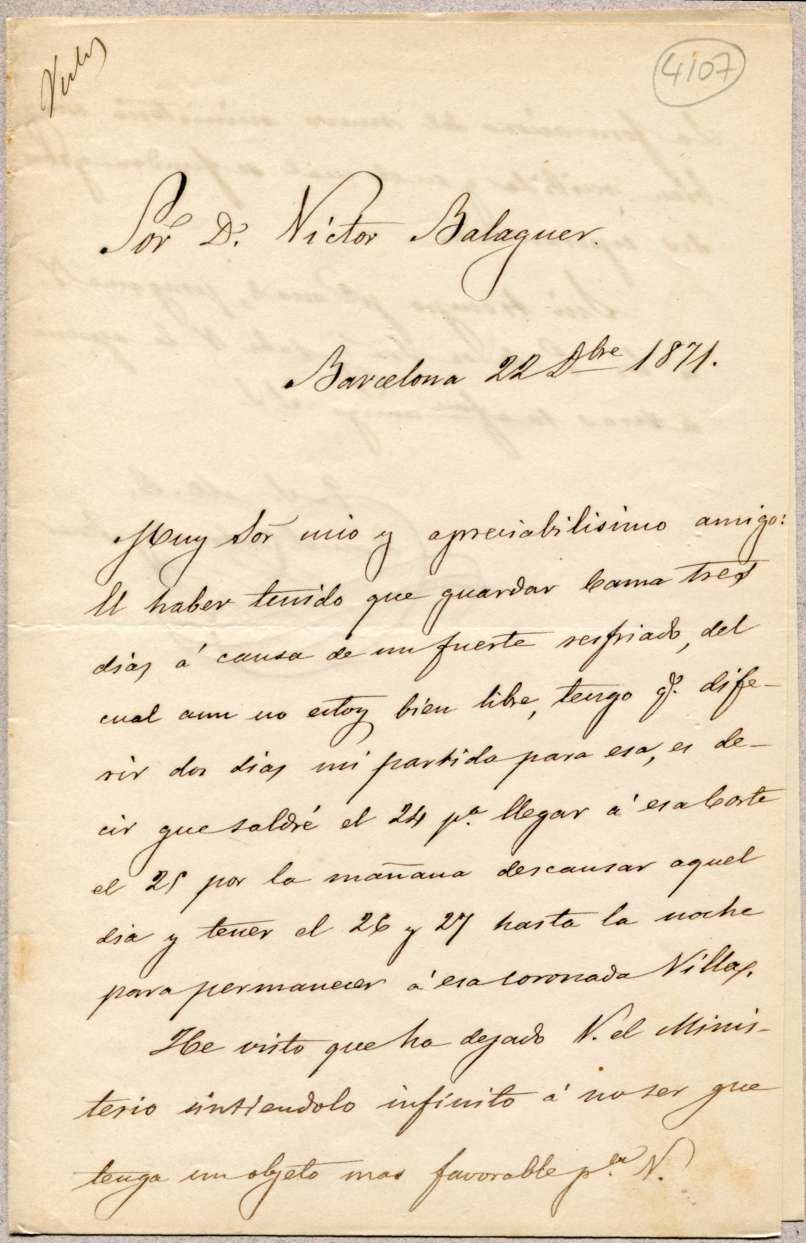 4107
Sor D. Víctor Balaguer.
Barcelona 22 Dbre 1871.
Muy Sor mio y apreciabilisimo amigo:
El haber tenido que guardar cama tres
dias á causa de un fuerte resfriado, del
cual aun no estoy bien libre, tengo q. dife-
rir dos dias mi partida para esa, es de-
cir que saldré el 24 pa. llegar á esa Corte
el 25 por la mañana descansar aquel
dia y tener el 26 y 27 hasta la noche
para permanecer á esa coronada Villa.
He visto que ha dejado V. el Minis-
terio sintiendolo infinito á no ser que
tenga un objeto mas favorable pa. V.